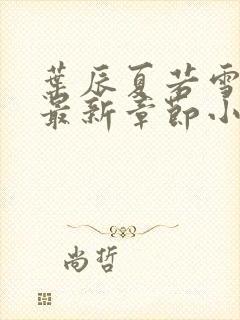 葉辰夏若雪
最新章節小
尚哲